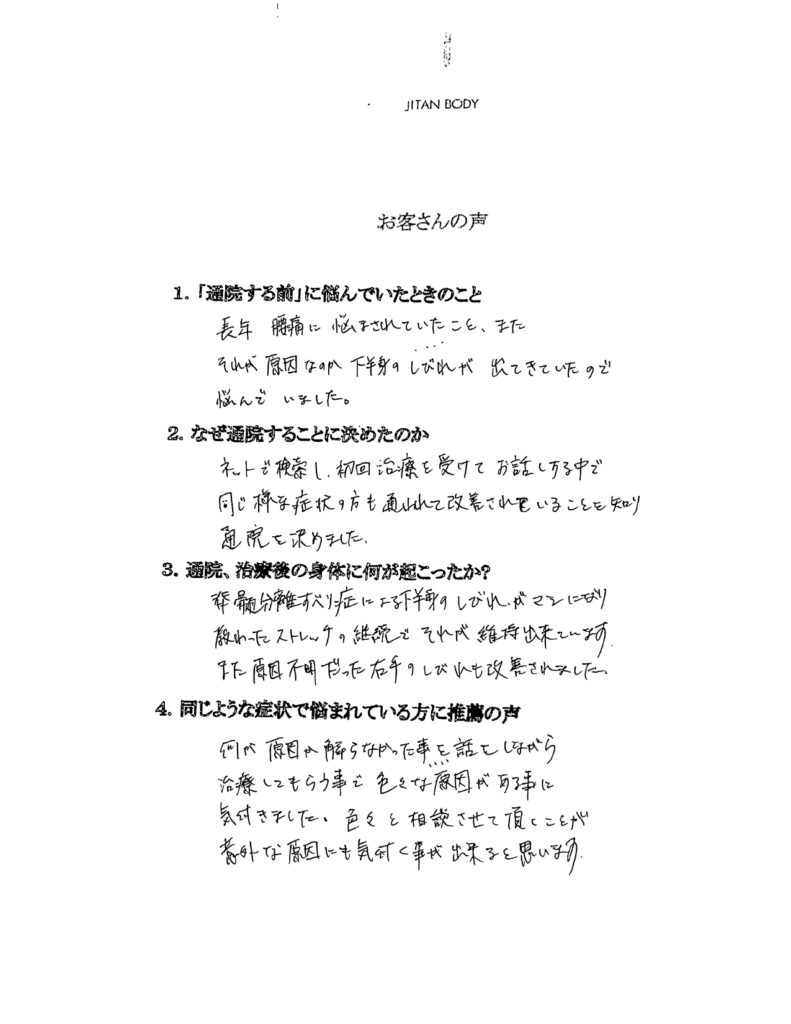 JITAN BODY
お客さんの声
1.「通院する前」に悩んでいたときのこと
長年 腰痛に 悩まされていたこと、また
それが 原因なのか 下半身の しびれが 出てきていたので
悩んで いました。
2. なぜ通院することに決めたのか
ネットで検索し、初回治療を受けて お話しする中で
同じ様な症状の方も通われて改善されていることを知り
通院を決めました。
3. 通院、治療後の身体に何が起こったか?
脊髄分離すべり症による下半身のしびれがマシになり
教わったストレッチの継続で それが 維持出来ています。
また 原因不明だった右手のしびれも改善されました。
4. 同じような症状で悩まれている方に推薦の声
何が 原因か 解らなかった事を話をしながら
治療してもらう事で 色々な原因がある事に
気付きました。色々と相談させて頂くことが
意外な原因にも気付く事が出来ると思います。